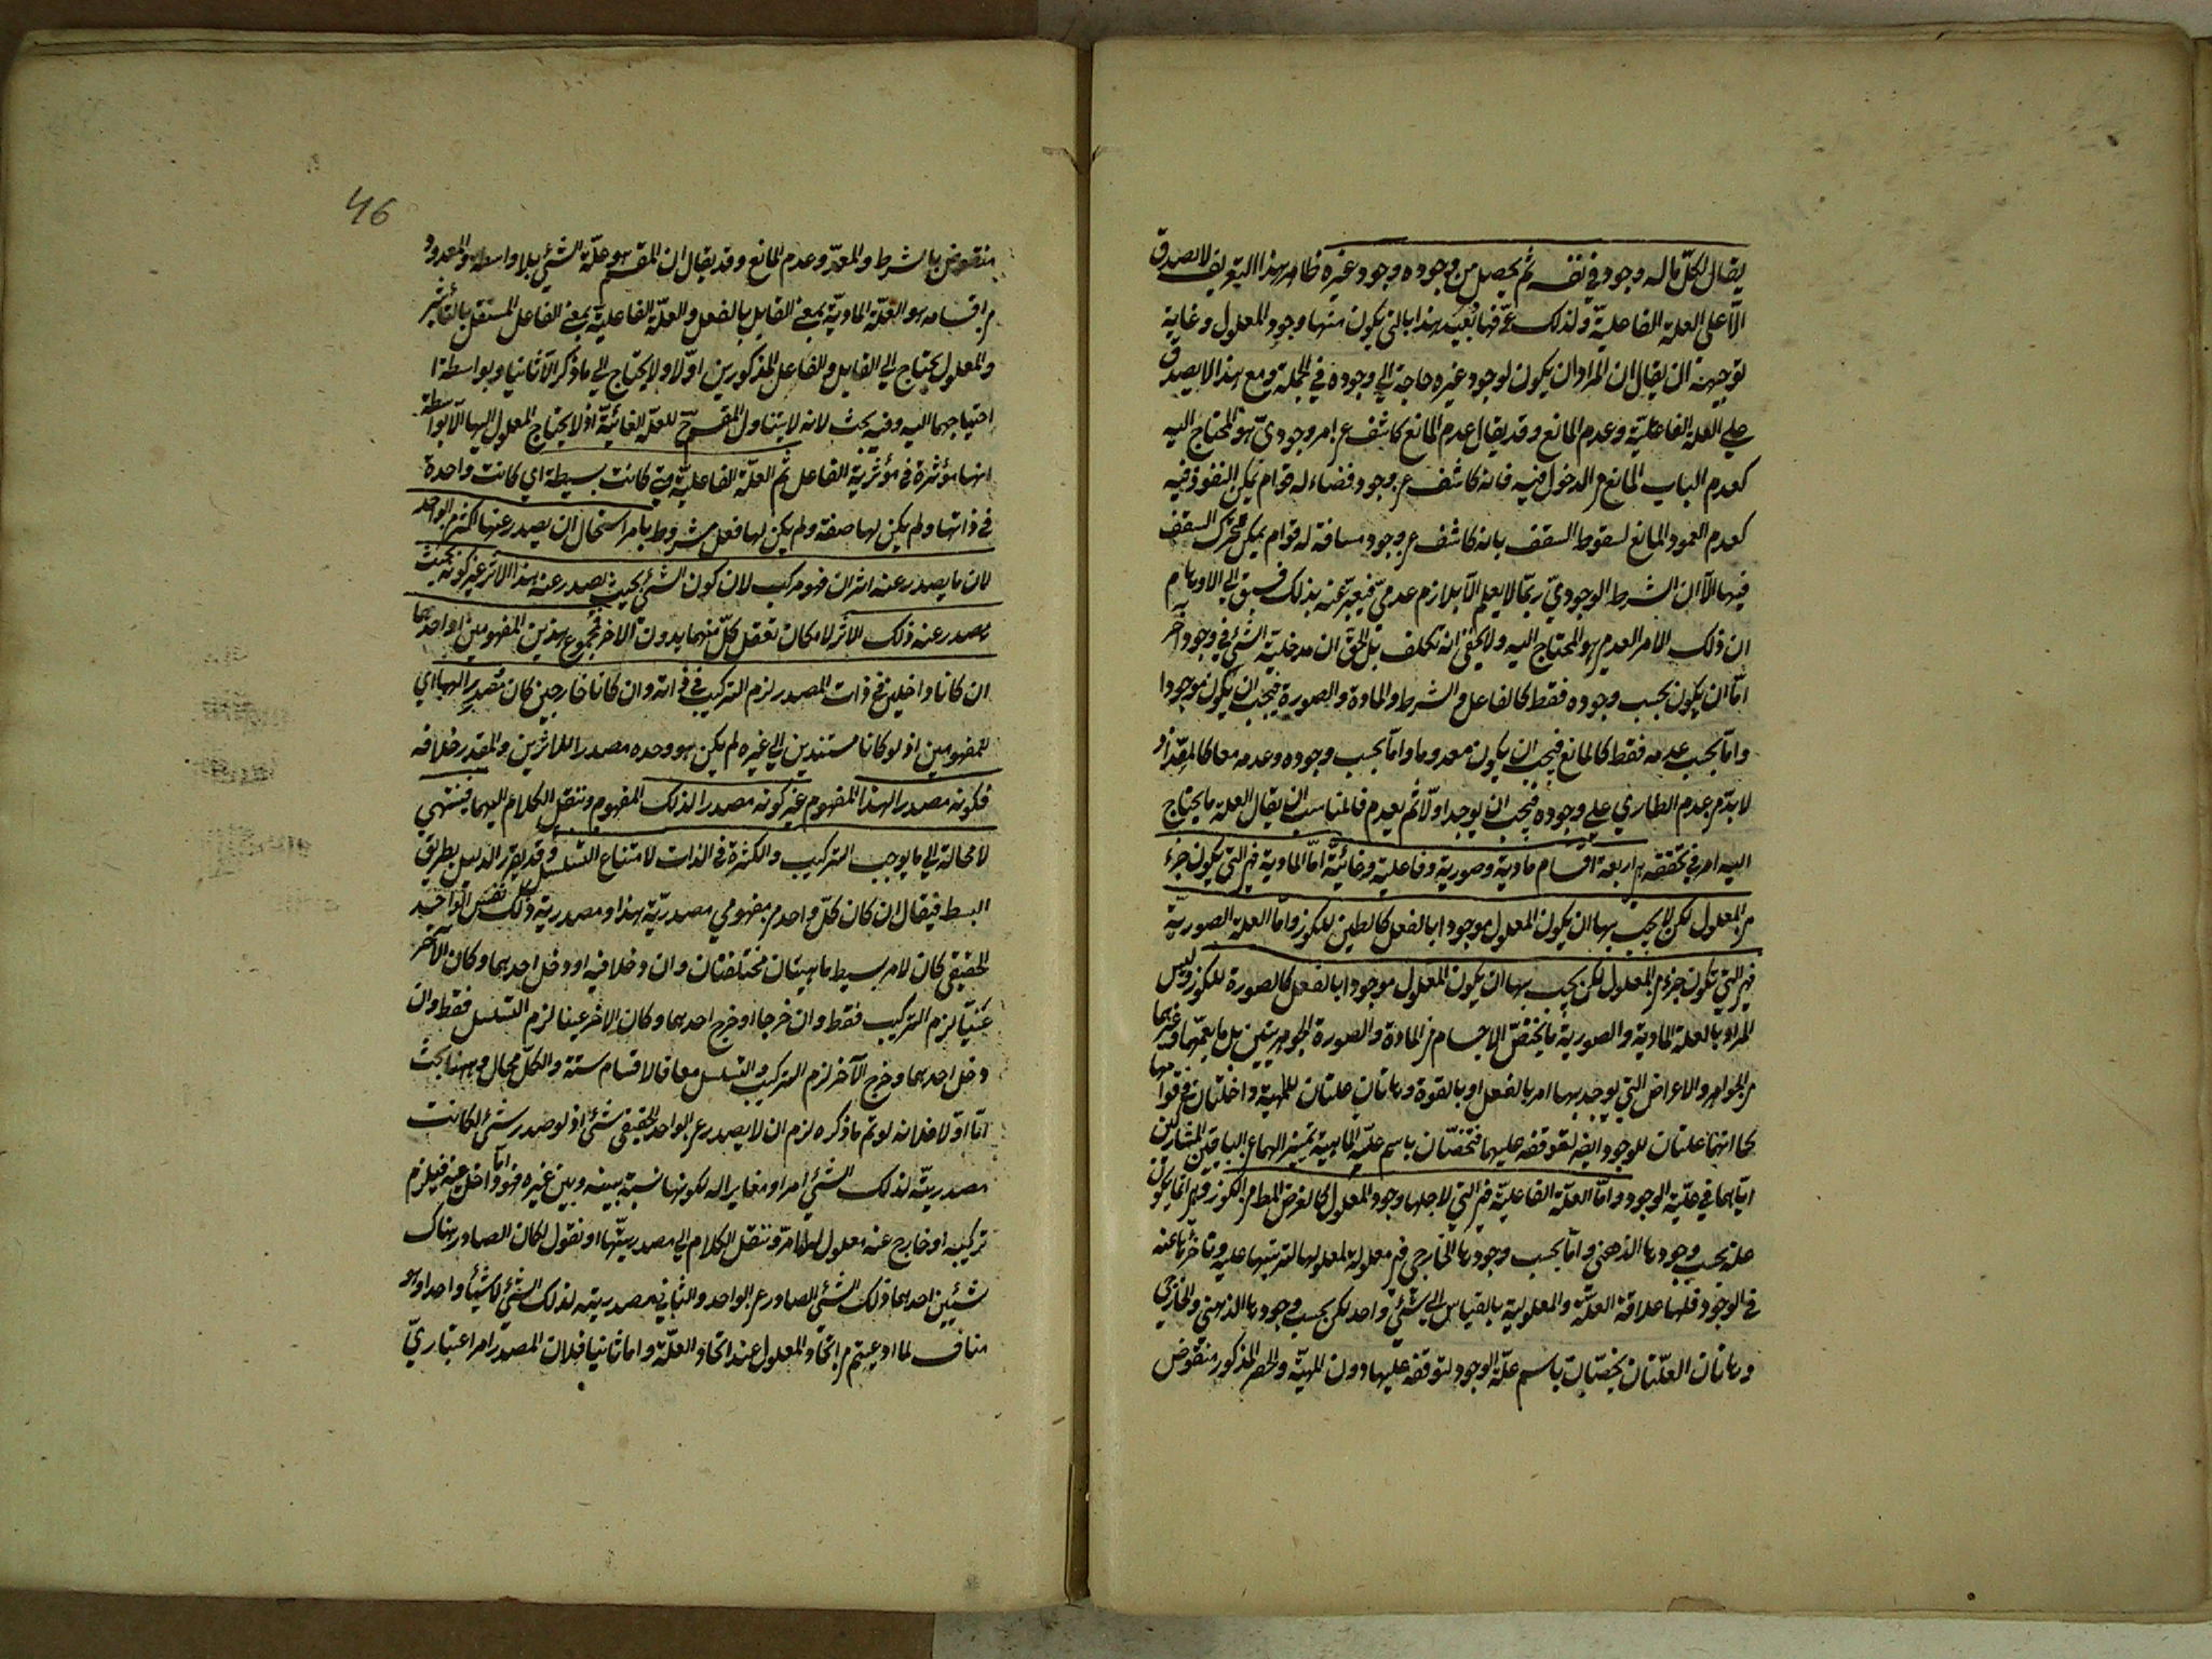 يقال لكل ما له وجود في نفسه ثم يحصل من وجوده وجود غيره ظاهر هذا التعريف لا يصدق
الا على العلة الفاعلية ولذلك عرفها بعيد هذا بالتي يكون منها وجود المعلول وغاية
توجيهه ان يقال ان المراد ان يكون لوجود غيره حاجة الى وجوده في الجملة ومع هذا لا يصدق
على العلة الفاعلية وعدم المانع وقد يقال عدم المانع كاشف عن امر وجودي هو المحتاج اليه
كعدم الباب المانع من الدخول فيه فانه كاشف عن وجود فضاء له قوام يمكن النفوذ فيه
كعدم العمود المانع لسقوط السقف بانه كاشف عن وجود مسافة له قوام يمكن تحرك السقف
فيها الا ان الشرط الوجودي ربما لا يعلم الا بلازم عدمي فيعبر عنه بذلك فسبق الى الاوهام
ان ذلك الامر العدمي هو المحتاج اليه ولا يخفى انه تكلف بل الحق ان مدخلية الشئ في وجود آخر
اما ان يكون بحسب وجوده فقط كالفاعل والشرط والمادة والصورة فيجب ان يكون موجودا
واما بحسب عدمه فقط كالمانع فيجب ان يكون معدوما واما بحسب وجوده وعدمه معا كالمعد اذ
لا بد من عدم الطاري على وجوده فيجب ان يوجد اولا ثم يعدم فالمناسب ان يقال العلة ما يحتاج
اليه امر في تحققه هي اربعة اقسام مادية وصورية وفاعلية وغائية اما المادية فهي التي يكون جزء
من المعلول لكن لا يجب بها ان يكون المعلول موجودا بالفعل كالطين للكوز واما العلة الصورية
فهي التي تكون جزء من المعلول لكن يجب بها ان يكون المعلول موجودا بالفعل كالصورة للكوز وليس
المراد بالعلة المادية والصورية ما يختص الاجسام من المادة والصورة الجوهريتين بل ما يعمهما وغيرهما
من الجواهر والاعراض التي يوجد بها امر بالفعل او بالقوة وهاتان علتان للمهية داخلتان في قوامها
كما انهما علتان للوجود ايضا لتوقفه عليهما فتختصان باسم علة الماهية تمييزا لهما عن الباقيتين المشاركتين
اياهما في علية الوجود واما العلة الفاعلية فهي التي لاجلها وجود المعلول كالغرض المط من الكوز وهي انما يكون
علة بحسب وجودها الذهني واما بحسب وجودها الخارجي فهي معلولة لمعلولها لترتبها عليه وتاخرها عنه
في الوجود فلها علاقة العلية والمعلولية بالقياس الى شئ واحد لكن بحسب وجودها الذهني والخارجي
وهاتان العلتان يخصان باسم علة الوجود لتوقفه عليهما دون المهية والحصر المذكور منقوض
46
منقوض بالشرط والمعد وعدم المانع وقد يقال ان المقسم هو علة الشئ بلا واسطة والمعدود
من اقسامه هو العلة المادية بمعنى القابل بالفعل والعلة الفاعلية بمعنى الفاعل المستقل بالتأثير
والمعلول يحتاج الى القابل والفاعل المذكورين اولا ولا يحتاج الى ما ذكر الا ثانيا وبواسطة
احتياجهما اليه وفيه بحث لانه لا يتناول المقسم ح للعلة الغائية اذ لا يحتاج المعلول اليها الا بواسطة
انها مؤثرة في مؤثرية الفاعل ثم العلة الفاعلية متى كانت بسيطة اي كانت واحدة
في ذاتها ولم يكن لها صفة ولم يكن لها فعل مشروط بامر استحال ان يصدر عنها اكثر من الواحد
لان ما يصدر عنه اثران فهو مركب لان كون الشئ بحيث يصدر عنه هذا الاثر غير كونه بحيث
يصدر عنه ذلك الاثر لامكان تعقل كل منهما بدون الآخر فمجموع هذين المفهومين او احدهما
ان كانا داخلين في ذات المصدر لزم التركيب في ذاته وان كانا خارجين كان مصدرا لهما اي
للمفهومين اذ لو كانا مستندين الى غيره لم يكن هو وحده مصدرا للاثرين والمقدر خلافه
فكونه مصدرا لهذا المفهوم غير كونه مصدرا لذلك المفهوم وننقل الكلام اليهما فينتهي
لا محالة الى ما يوجب التركيب والكثرة في الذات لامتناع التسلسل وقد يقرر الدليل بطريق
البسط فيقال ان كان كل واحد من مفهومي مصدرية هذا ومصدرية ذلك نفس الواحد
الحقيقي كان لامر بسيط ماهيتان مختلفتان وان دخلا فيه او دخل احدهما وكان الآخر
عينا لزم التركيب فقط وان خرجا او خرج احدهما وكان الآخر عينا لزم التسلسل فقط وان
دخل احدهما وخرج الآخر لزم التركيب والتسلسل معا فالاقسام ستة والكل محال وههنا بحث
اما اولا فلانه لو تم ما ذكره لزم ان لا يصدر عن الواحد الحقيقي شئ اذ لو صدر شئ لكانت
مصدريته لذلك الشئ امرا مغايرا له لكونها نسبة بينه وبين غيره فهو اما داخل فيه فيلزم
تركيبه او خارج عنه معلول له لما مر وننقل الكلام الى مصدريتها او نقول لكان الصادر هناك
شيئين احدهما ذلك الشئ الصادر عن الواحد والثاني مصدريته لذلك الشئ لا شيئا واحدا وهو
مناف لما ادعيتم من اتحاد المعلول عند اتحاد العلة واما ثانيا فلان المصدر امر اعتباري